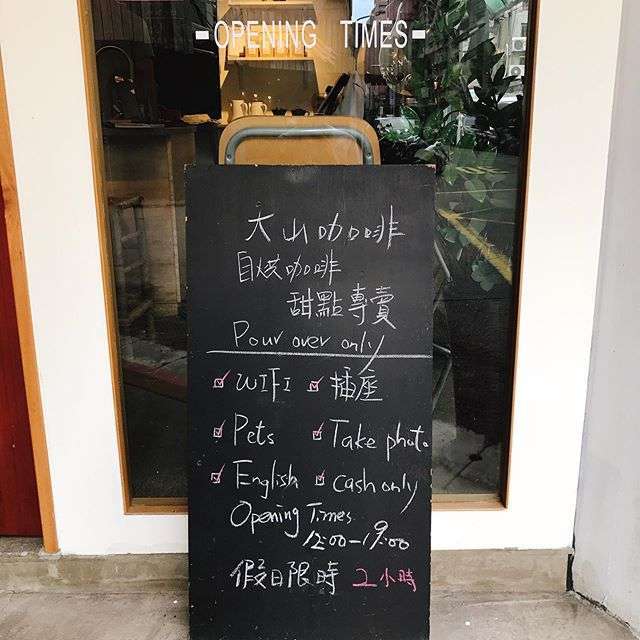 -OPENING TIMES-
大山咖啡
自烘咖啡
甜點專賣
Pour over only
☑ WIFI ☑ 插座
☑ Pets ☑ Take photo
☑ English ☑ cash only
Opening Times
12:00-19:00
假日限時 2小時